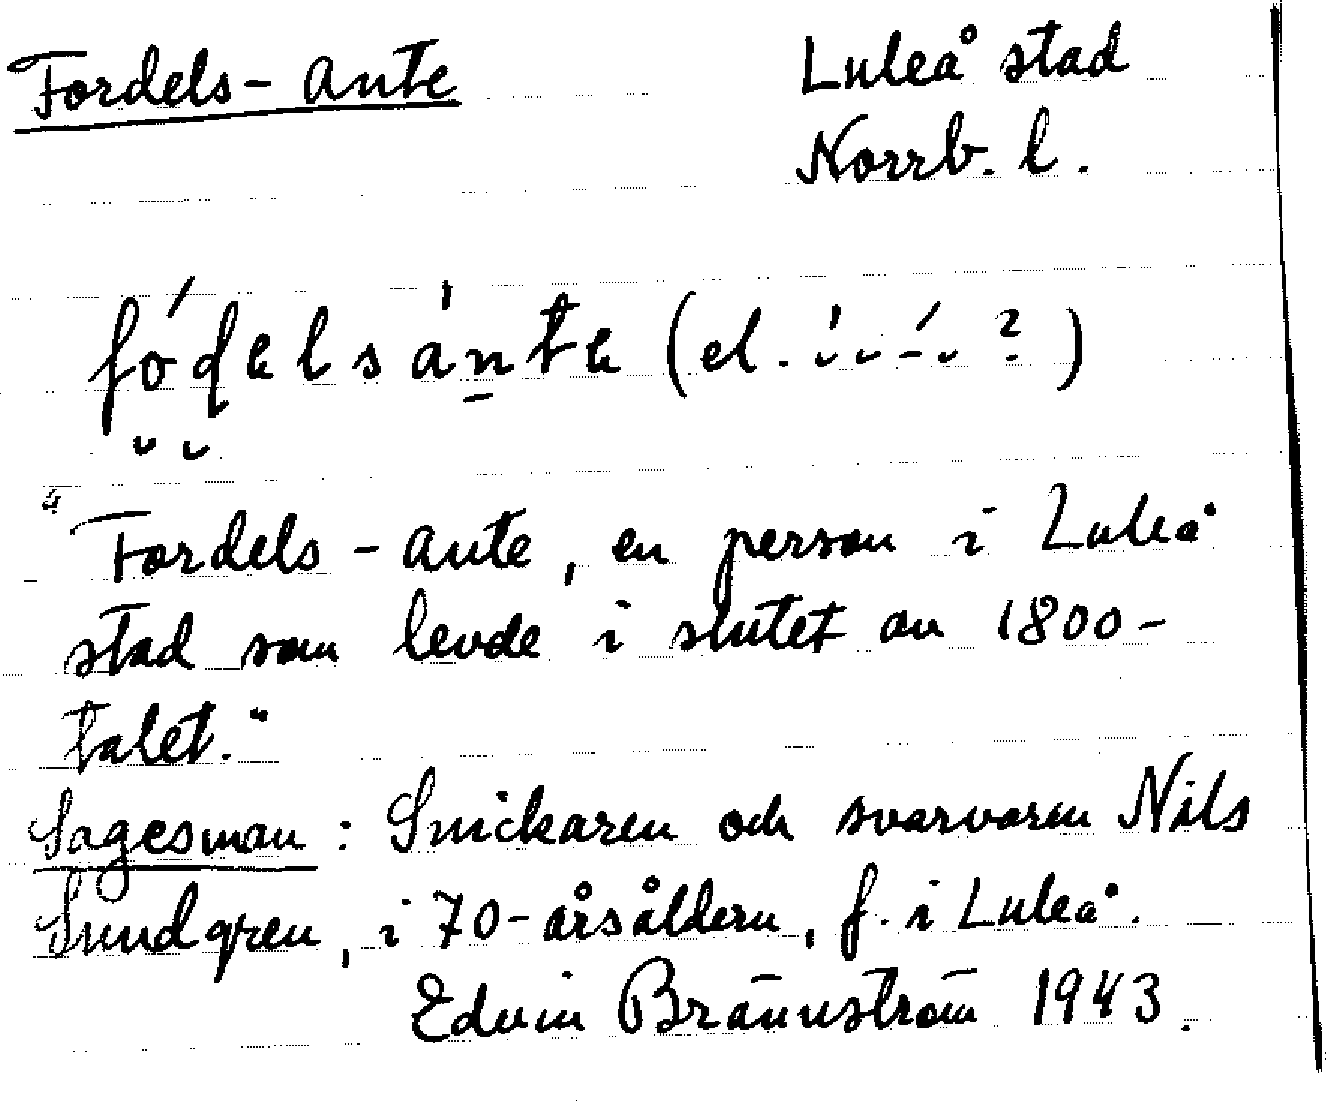 Fordels-Ante
Luleå stad
Norrb. l.
"Fordels-Ante, en person i Luleå
stad som levde i slutet av 1800-
talet."
Sagesman: Snickaren och svarvaren Nils
Sundgren, i 70-årsåldern, f. i Luleå.
Edvin Brännström 1943.